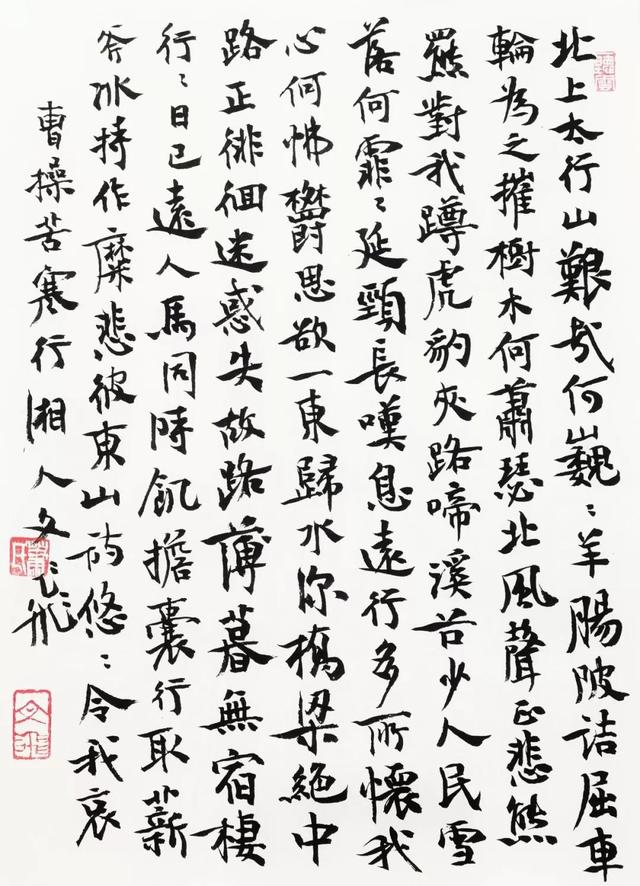 北上太行山艱哉何巍〻羊腸陂詰屈車
輪為之摧樹木何蕭瑟北風聲正悲熊
羆對我蹲虎豹夾路啼溪谷少人民雪
落何霏〻延頸長嘆息遠行多所懷我
心何怫鬱思欲一東歸水深橋梁絕中
路正徘徊迷惑失故路薄暮無宿棲
行〻日已遠人馬同時飢擔囊行取薪
斧冰持作糜悲彼東山詩悠〻令我哀
曹操苦寒行湘人文飛